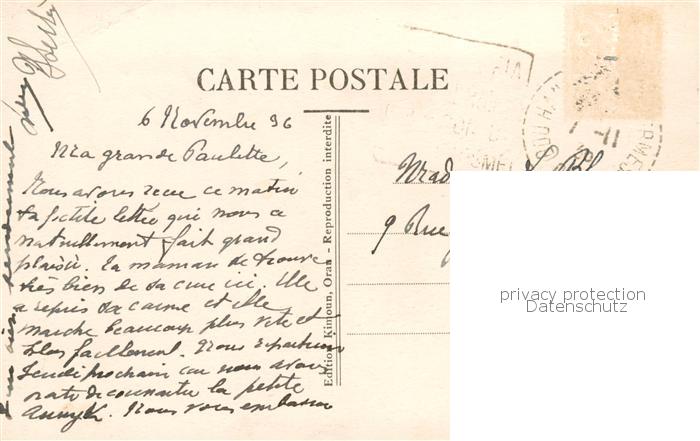 CARTE POSTALE
6 Novembre 36
Ma grande Paulette,
Nous avons reçu ce matin
ta petite lettre qui nous a
naturellement fait grand
plaisir. Ta maman se trouve
très bien de sa cure ici. Elle
a repris sa canne et elle
marche beaucoup plus vite et
plus facilement. Nous repartirons
Jeudi prochain car nous avons
hate de connaitre la petite
Annyck. Nous vous embrassons
bien tendrement
Edition Kimoun, Oran - Reproduction interdite
Mad
9 Rue
privacy protection
Datenschutz